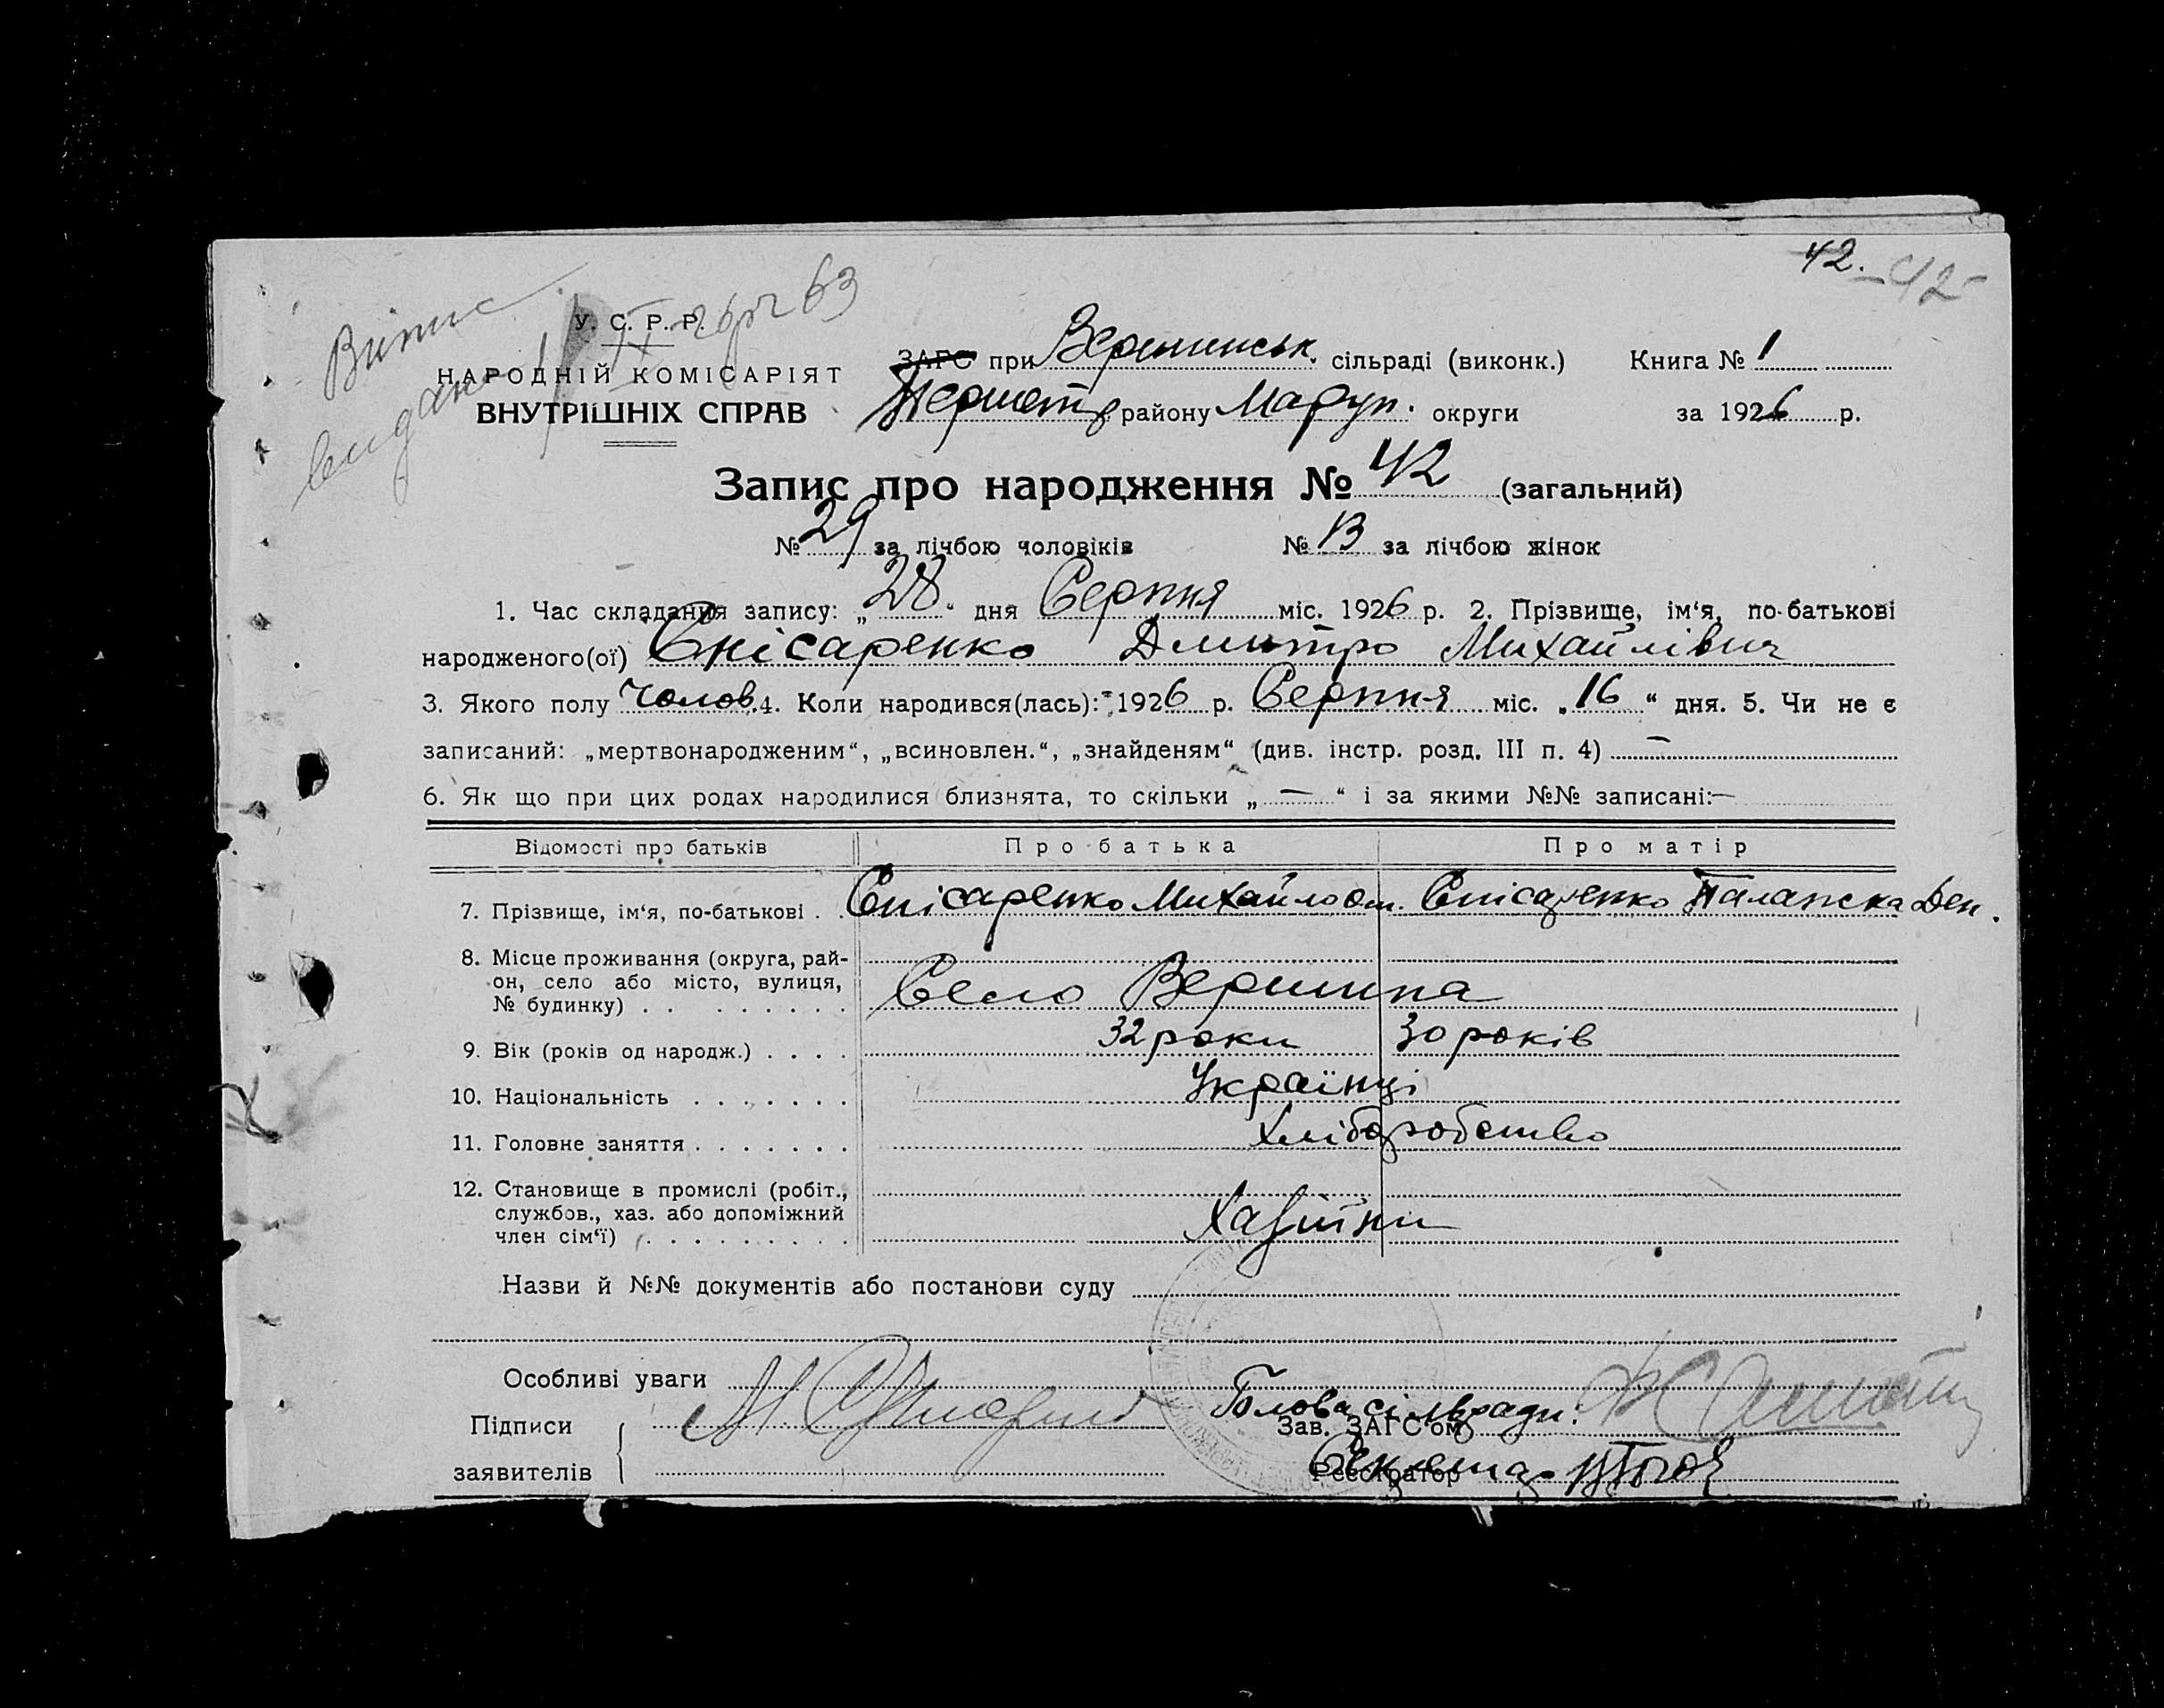 42. -42-
Випис
видано
63
У. С. Р. Р.
НАРОДНІЙ КОМІСАРІЯТ
ВНУТРІШНІХ СПРАВ
ЗАГС при Вершинськ. сільраді (виконк.) Книга № 1
району Маруп. округи за 1926 р.
Запис про народження № 42 (загальний)
№ 29 за лічбою чоловіків № 13 за лічбою жінок
1. Час складання запису: „28“ дня Серпня міс. 1926 р. 2. Прізвище, ім‘я, по-батькові
народженого(ої) Єнісаренко Дмитро Михайлівич
3. Якого полу Чолов. 4. Коли народився(лась): 1926 р. Серпня міс. „16“ дня. 5. Чи не є
записаний: „мертвонародженим“, „всиновлен.“, „знайденям“ (див. інстр. розд. III п. 4) —
6. Як що при цих родах народилися близнята, то скільки „—“ і за якими №№ записані: —
Відомості про батьків Про батька Про матір
7. Прізвище, ім‘я, по-батькові . . Єнісаренко Михайло Єнісаренко Палажка Ден.
8. Місце проживання (округа, рай-
он, село або місто, вулиця,
№ будинку) . . . . . . . . . Село Вершина
9. Вік (років од народж.) . . . . 32 роки 30 років
10. Національність . . . . . . . Українці
11. Головне заняття . . . . . . . Хліборобство
12. Становище в промислі (робіт.,
службов., хаз. або допоміжний
член сім‘ї) . . . . . . . . . Хазяїни
Назви й №№ документів або постанови суду
Особливі уваги
Підписи Голова сільради:
Зав. ЗАГС‘ом
заявителів Реєстратор Секретар